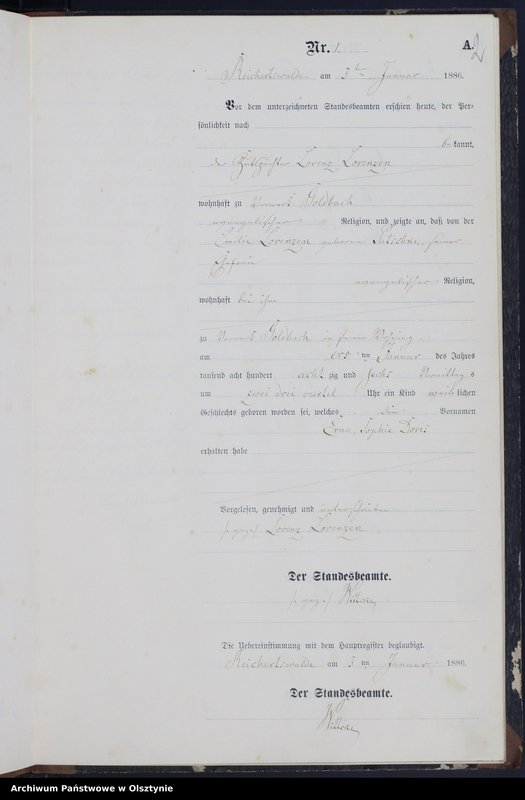 Nr. 1.
A. 2
Reichertswalde am 5ten Januar 1886.
Vor dem unterzeichneten Standesbeamten erschien heute, der Per-
sönlichkeit nach
be kannt,
der Gutspächter Lorenz Lorenzen
wohnhaft zu Vorwerk Goldbach
evangelischer Religion, und zeigte an, daß von der
Emilie Lorenzen geborene seiner
Ehefrau
evangelischer Religion,
wohnhaft bei ihm
zu Vorwerk Goldbach in seiner Wohnung
am ten Januar des Jahres
tausend acht hundert acht zig und sechs Vormittags
um zwei drei viertel Uhr ein Kind weib lichen
Geschlechts geboren worden sei, welches die Vornamen
Erna, Sophie Doris
erhalten habe
Vorgelesen, genehmigt und unterschrieben
gez. Lorenz Lorenzen
Der Standesbeamte.
gez.
Die Uebereinstimmung mit dem Hauptregister beglaubigt.
Reichertswalde am 5 ten Januar 1886.
Der Standesbeamte.
Archiwum Państwowe w Olsztynie